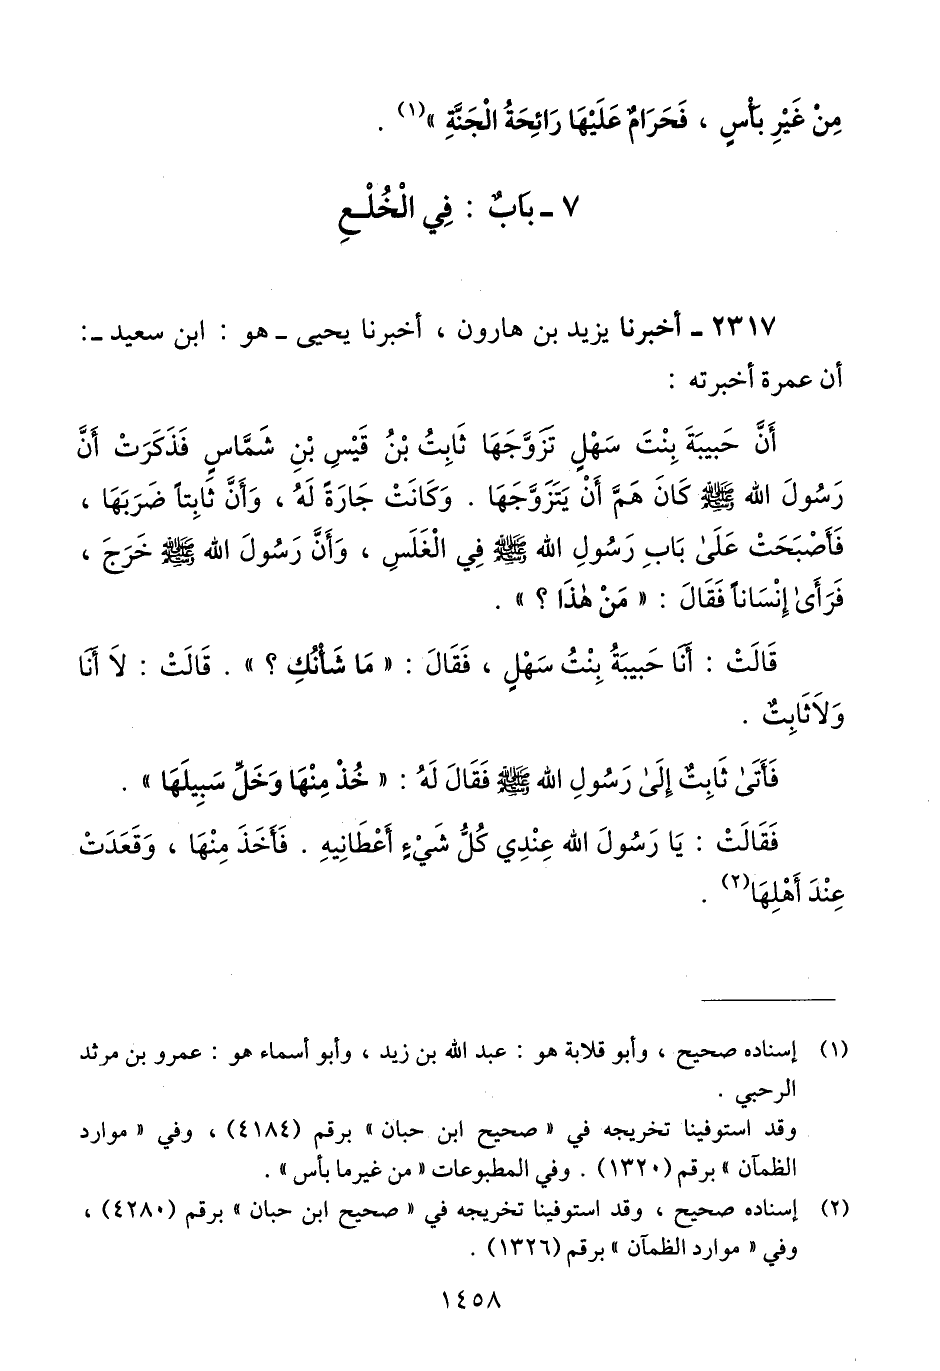 مِنْ غَيْرِ بَأْسٍ ، فَحَرَامٌ عَلَيْهَا رَائِحَةُ الْجَنَّةِ »(١) .
٧ ـ بَابٌ : فِي الْخُلْعِ
٢٣١٧ ـ أخبرنا يزيد بن هارون ، أخبرنا يحيى ـ هو : ابن سعيد ـ :
أن عمرة أخبرته :
أَنَّ حَبِيبَةَ بِنْتَ سَهْلٍ تَزَوَّجَهَا ثَابِتُ بْنُ قَيْسِ بْنِ شَمَّاسٍ فَذَكَرَتْ أَنَّ
رَسُولَ الله ﷺ كَانَ هَمَّ أَنْ يَتَزَوَّجَهَا . وَكَانَتْ جَارَةً لَهُ ، وَأَنَّ ثَابِتاً ضَرَبَهَا ،
فَأَصْبَحَتْ عَلَىٰ بَابِ رَسُولِ الله ﷺ فِي الْغَلَسِ ، وَأَنَّ رَسُولَ الله ﷺ خَرَجَ ،
فَرَأَىٰ إِنْسَاناً فَقَالَ : « مَنْ هٰذَا ؟ » .
قَالَتْ : أَنَا حَبِيبَةُ بِنْتُ سَهْلٍ ، فَقَالَ : « مَا شَأْنُكِ ؟ » . قَالَتْ : لاَ أَنَا
وَلاَ ثَابِتٌ .
فَأَتَىٰ ثَابِتٌ إِلَىٰ رَسُولِ الله ﷺ فَقَالَ لَهُ : « خُذْ مِنْهَا وَخَلِّ سَبِيلَهَا » .
فَقَالَتْ : يَا رَسُولَ الله عِنْدِي كُلُّ شَيْءٍ أَعْطَانِيهِ . فَأَخَذَ مِنْهَا ، وَقَعَدَتْ
عِنْدَ أَهْلِهَا(٢) .
(١) إسناده صحيح ، وأبو قلابة هو : عبد الله بن زيد ، وأبو أسماء هو : عمرو بن مرثد
الرحبي .
وقد استوفينا تخريجه في « صحيح ابن حبان » برقم (٤١٨٤) ، وفي « موارد
الظمآن » برقم (١٣٢٠) . وفي المطبوعات « من غير ما بأس » .
(٢) إسناده صحيح ، وقد استوفينا تخريجه في « صحيح ابن حبان » برقم (٤٢٨٠) ،
وفي « موارد الظمآن » برقم (١٣٢٦) .
١٤٥٨